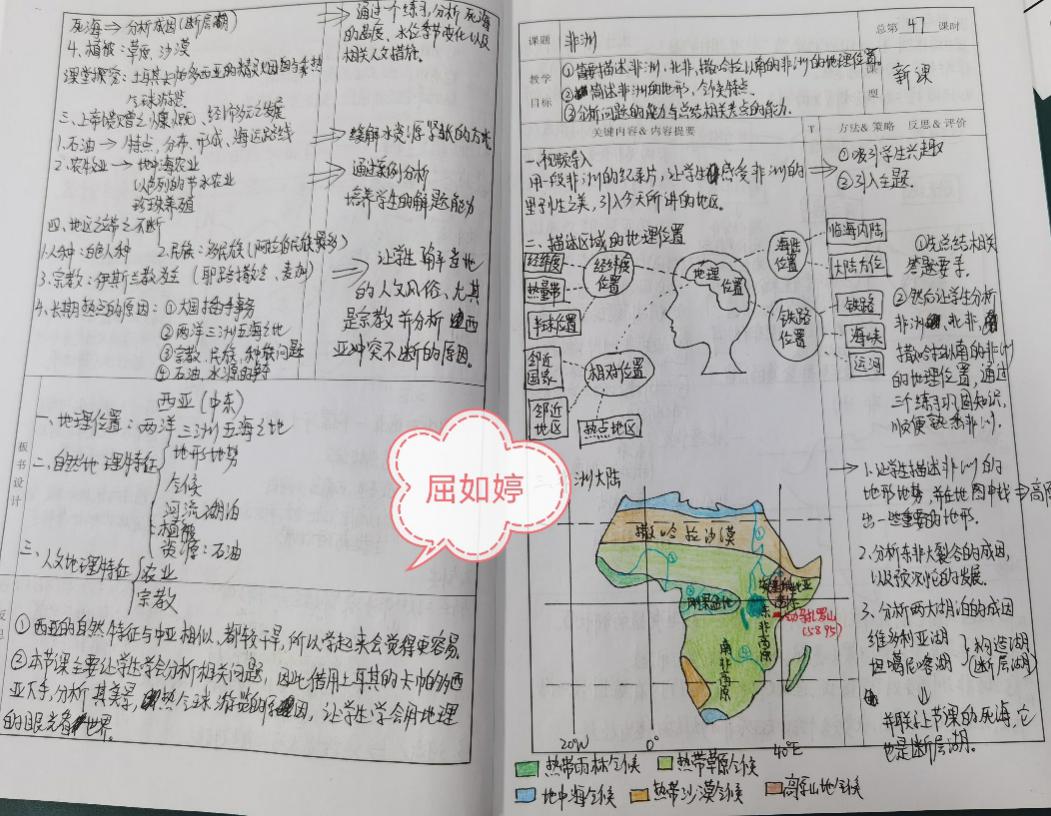 死海→分析成因(断层湖)
4.植被:草原.沙漠
三、上帝偏爱之"膏腴".经济效元之发展
1.石油→特点、分布、形成、海运路线
2.农牧业→地中海农业
以色列的节水农业
珍珠养殖
四.地区之带之不断
1.人种:白色人种 2.民族:
3.宗教:伊斯兰教发生(耶路撒冷、麦加)
4.长期热点的原因:①大国插手事务
②两洋三洲五海之地
③宗教、民族、种族问题
④石油、水源的争
⇒通过一个练习,分析死海
的盐度、水位季节变化以及
相关人文措施.
⇒缓解水资源紧张的方法
⇒通过案例分析
培养学生的解题能力
⇒让学生了解当地
的人文风俗、尤其
是宗教并分析西
亚冲突不断的原因.
板书设计
西亚(中东)
一、地理位置:两洋三洲五海之地
二、自然地理特征
地形地势
气候
河流、湖泊
植被
资源:石油
三、人文地理特征
农业
宗教
①西亚的自然特征与中亚相似、都较干旱,所以学起来会觉得更容易.
②本节课主要让学生学会分析相关问题,因此借用土耳其的卡帕多西
亚为例,分析其美景,热气球游览的原因,让学生学会用地理
的眼光看世界.
屈如婷
总第 47 课时
课题 非洲
教学目标
①简要描述非洲、北非、撒哈拉以南的非洲的地理位置.
②简述非洲的地形、气候特点.
③分析问题的能力与总结相关考点的能力.
课型 新课
关键内容&内容提要 T 方法&策略 反思&评价
一.视频导入
用一段非洲的纪录片,让学生感受非洲的
野性之美,引入今天所讲的地区.
⇒①吸引学生兴趣
②引入主题.
二.描述区域的地理位置
经纬度
热量带
半球位置
经纬度位置
邻近国家
邻近地区
热点地区
相对位置
地理位置
海陆位置
临海内陆
大陆方位
铁路位置
铁路
海峡
运河
①先总结相关
答题要求.
②然后让学生分析
非洲、北非、
撒哈拉以南的非洲
的地理位置,通过
三个练习巩固知识,
顺便熟悉非洲.
三、洲大陆
撒哈拉沙漠
刚果盆地
埃塞俄比亚高原
东非高原
南非高原
乞力马扎罗山
(5895)
20°W 0° 40°E
热带雨林气候 热带草原气候
地中海气候 热带沙漠气候 高原山地气候
1.让学生描述非洲的
地形地势,并在地图中找
出一些重要的地形.
2.分析东非大裂谷的成因,
以及预测它的发展.
3.分析两大湖泊的成因
维多利亚湖
坦噶尼喀湖
构造湖
(断层湖)
并联系上节课的死海,它
也是断层湖.